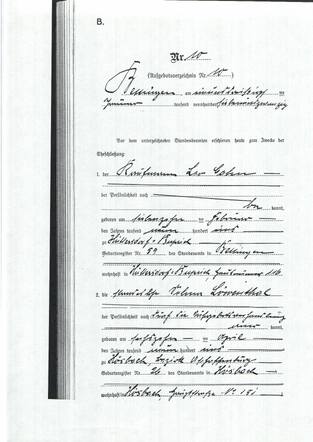 B.
Nr. 10
(Aufgebotsverzeichnis Nr. 10)
Bettingen am einunddreißigsten
Januar tausend neunhundert siebenundzwanzig
Vor dem unterzeichneten Standesbeamten erschienen heute zum Zwecke der
Eheschließung:
1. der Kaufmann Leo
der Persönlichkeit nach
be kannt,
geboren am siebzehnten Februar
des Jahres tausend neun hundert eins
zu Hüttersdorf-Buprich
Geburtsregister Nr. 89 des Standesamts in Bettingen
wohnhaft in Hüttersdorf-Buprich, 116
2. die Selma Löwenthal
der Persönlichkeit nach
kannt,
geboren am sechszehn April
des Jahres tausend neun hundert eins
zu Hösbach, Bezirk Aschaffenburg
Geburtsregister Nr. 26 des Standesamts in Hösbach
wohnhaft in Hösbach, Hauptstraße No 151